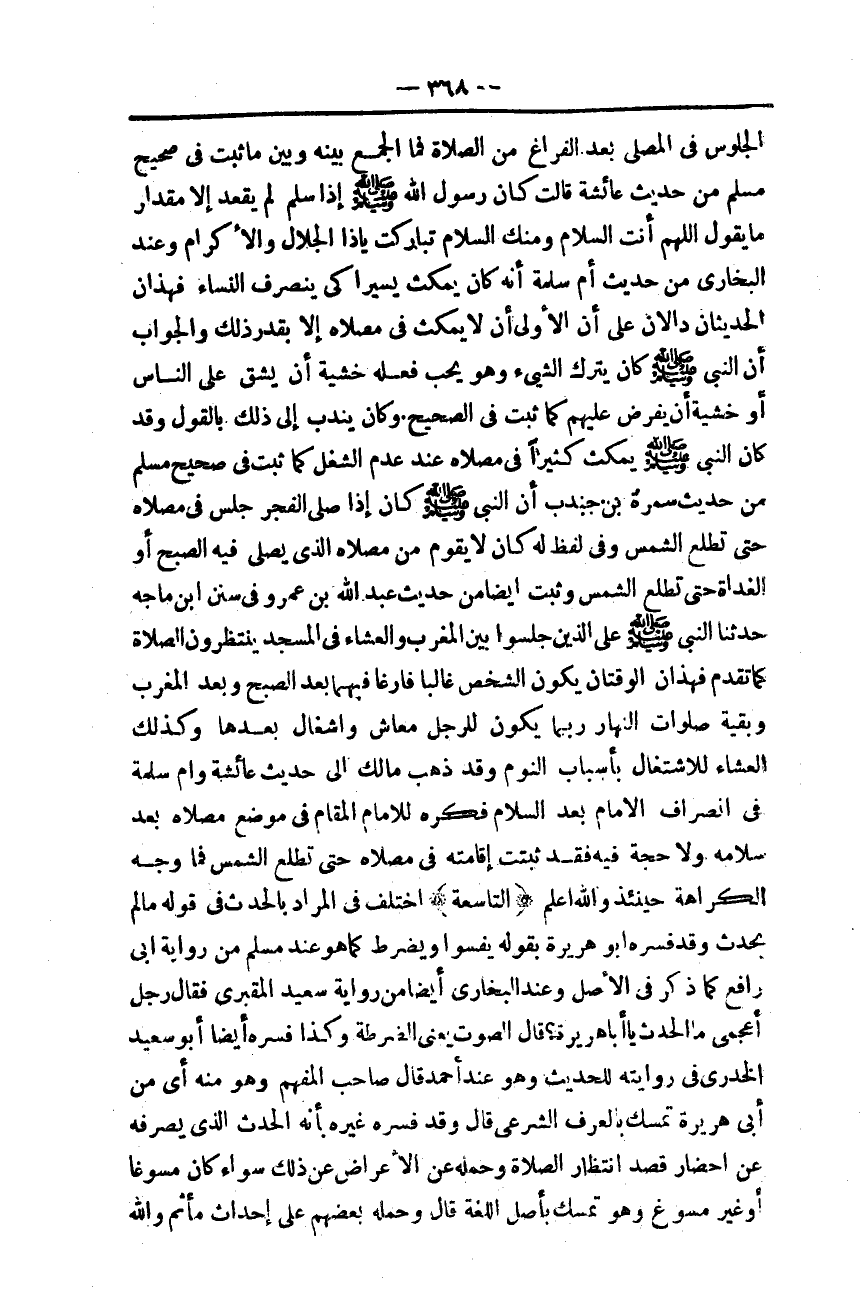 — ٣٦٨ —
الجلوس فى المصلى بعد الفراغ من الصلاة فما الجمع بينه وبين ماثبت فى صحيح
مسلم من حديث عائشة قالت كان رسول الله ﷺ إذا سلم لم يقعد إلا مقدار
مايقول اللهم أنت السلام ومنك السلام تباركت ياذا الجلال والأكرام وعند
البخارى من حديث أم سلمة أنه كان يمكث يسيرا كى ينصرف النساء فهذان
الحديثان دالان على أن الأولى أن لايمكث فى مصلاه إلا بقدر ذلك والجواب
أن النبى ﷺ كان يترك الشيء وهو يحب فعله خشية أن يشق على الناس
أو خشية أن يفرض عليهم كما ثبت فى الصحيح. وكان يندب إلى ذلك بالقول وقد
كان النبى ﷺ يمكث كثيراً فى مصلاه عند عدم الشغل كما ثبت فى صحيح مسلم
من حديث سمرة بن جندب أن النبى ﷺ كان إذا صلى الفجر جلس فى مصلاه
حتى تطلع الشمس وفى لفظ له كان لايقوم من مصلاه الذى يصلى فيه الصبح أو
الغداة حتى تطلع الشمس وثبت ايضا من حديث عبد الله بن عمرو فى سنن ابن ماجه
حدثنا النبى ﷺ على الذين جلسوا بين المغرب والعشاء فى المسجد ينتظرون الصلاة
كما تقدم فهذان الوقتان يكون الشخص غالبا فارغا فيهما بعد الصبح وبعد المغرب
وبقية صلوات النهار ربما يكون للرجل معاش واشغال بعدها وكذلك
العشاء للاشتغال بأسباب النوم وقد ذهب مالك الى حديث عائشة وام سلمة
فى انصراف الامام بعد السلام فكره للامام المقام فى موضع مصلاه بعد
سلامه ولا حجة فيه فقد ثبتت إقامته فى مصلاه حتى تطلع الشمس فما وجه
الكراهة حينئذ والله اعلم ﴿التاسعة﴾ اختلف فى المراد بالحدث فى قوله مالم
يحدث وقد فسره ابو هريرة بقوله يفسوا ويضرط كماهو عند مسلم من رواية ابى
رافع كما ذكر فى الأصل وعند البخارى أيضا من رواية سعيد المقبرى فقال رجل
أعجمى ما الحدث ياأباهريرة؟ قال الصوت يعنى الضرطة وكذا فسره أيضا أبو سعيد
الخدرى فى روايته للحديث وهو عند أحمد قال صاحب المفهم وهو منه أى من
أبى هريرة تمسك بالعرف الشرعى قال وقد فسره غيره بأنه الحدث الذى يصرفه
عن احضار قصد انتظار الصلاة وحمله عن الأعراض عن ذلك سواء كان مسوغا
أوغير مسوغ وهو تمسك بأصل اللغة قال وحمله بعضهم على إحداث مأثم والله